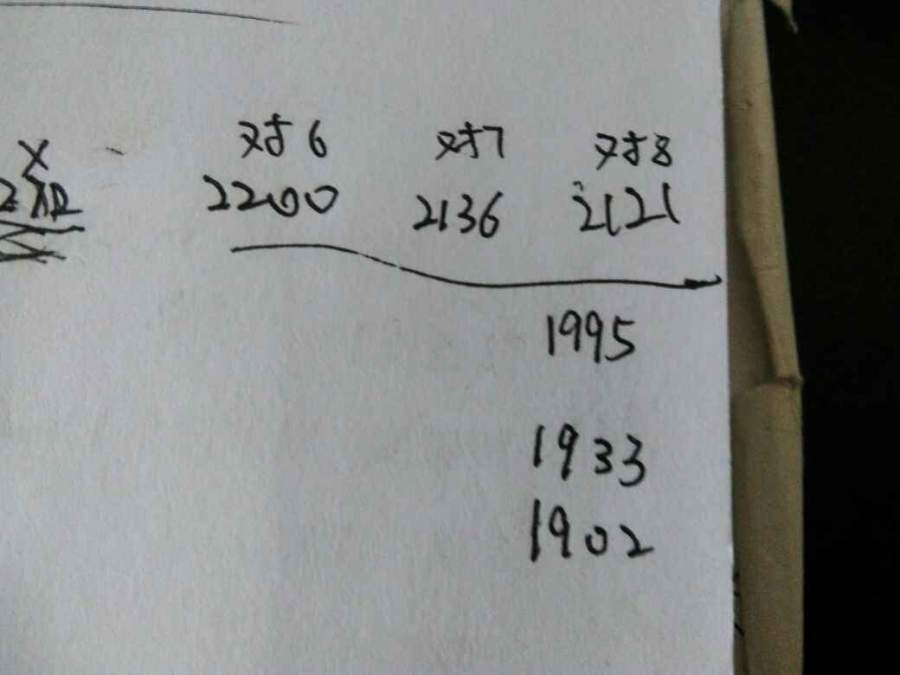 对6 对7 对8
2200 2136 2121
1995
1933
1902